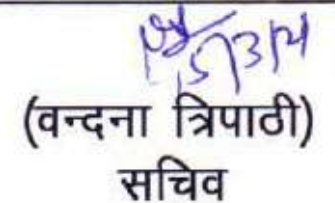 15/3/21
(वन्दना त्रिपाठी)
सचिव